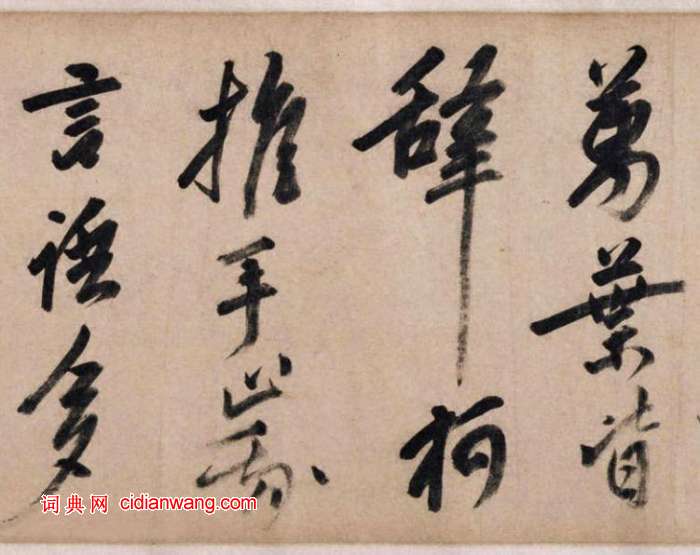 萬葉皆
辭柯
推手
言多
词典网 cidianwang.com